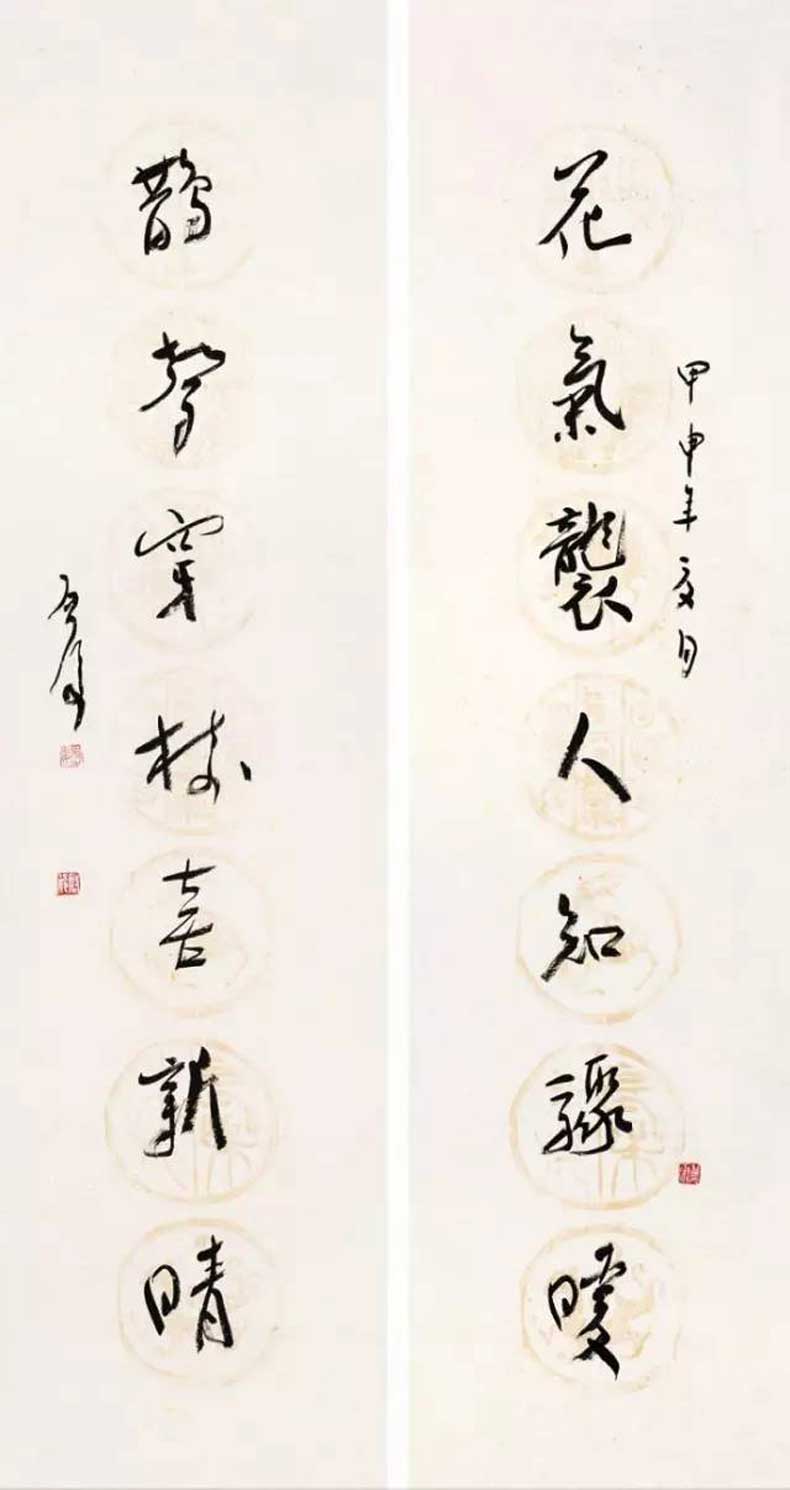 花氣襲人知驟暖
甲申年夏月
鵲聲穿樹喜新晴